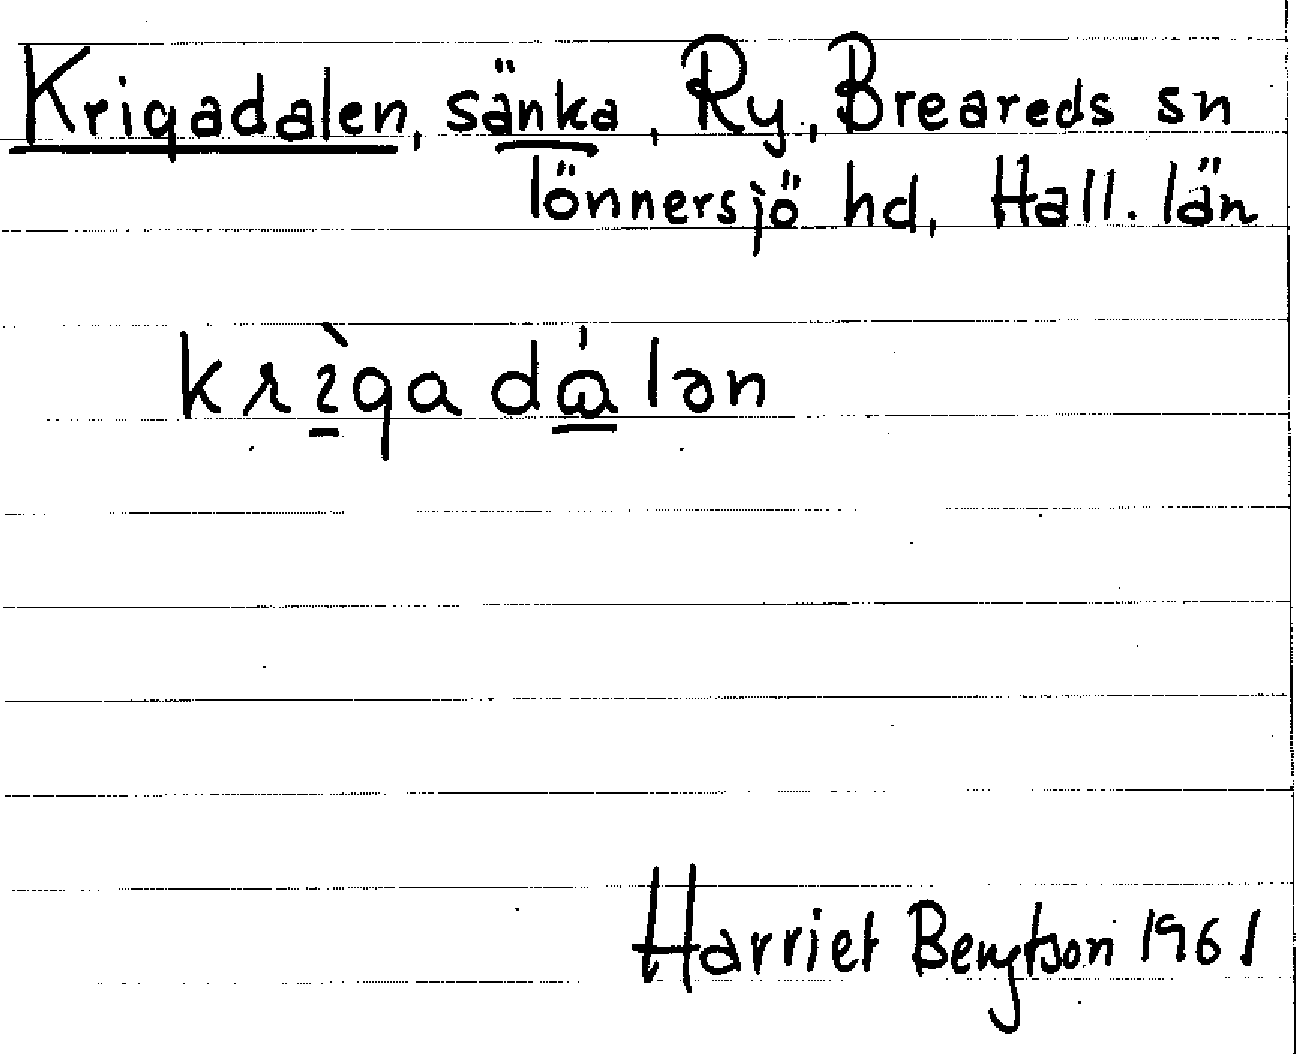 Krigadalen, sänka, Ry, Breareds sn
lönnersjö hd, Hall. län
krìgadálən
Harriet Bengtson 1961